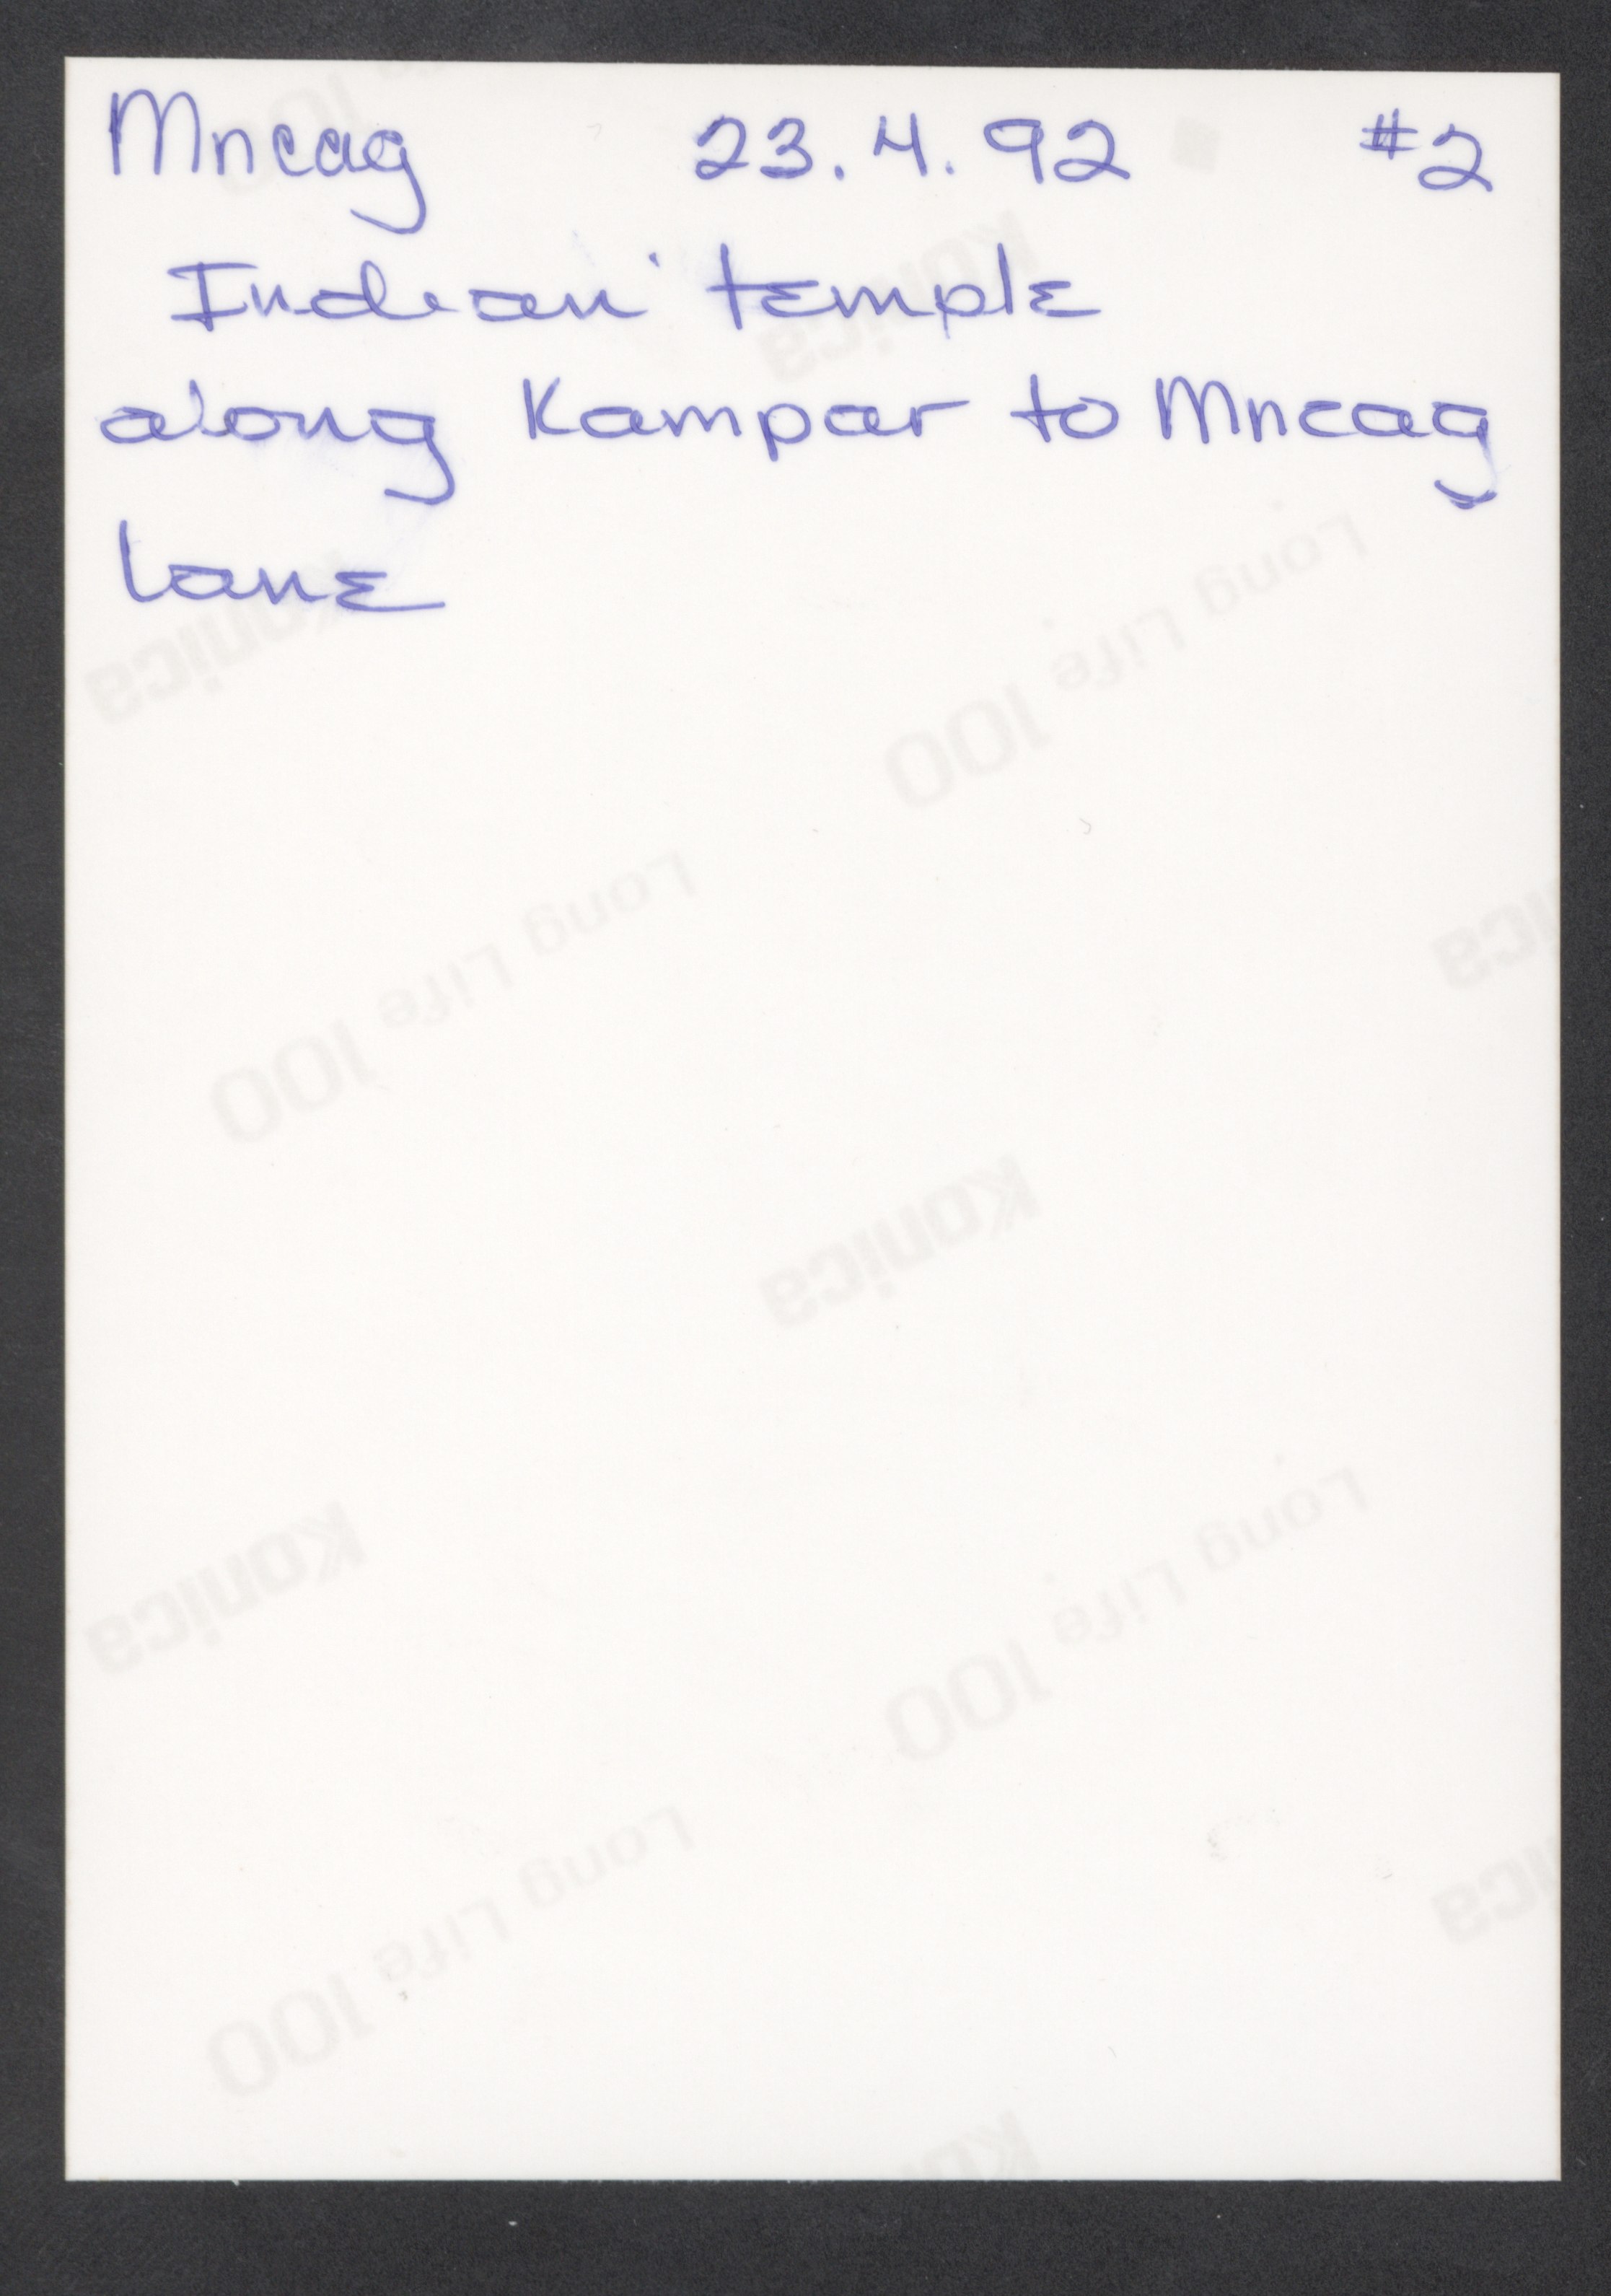 Mncag 23.4.92 #2
Indian temple
along Kampar to Mncag
lane
Konica
Long Life 100
Konica
Long Life 100
Konica
Konica
Long Life 100
Konica
Long Life 100